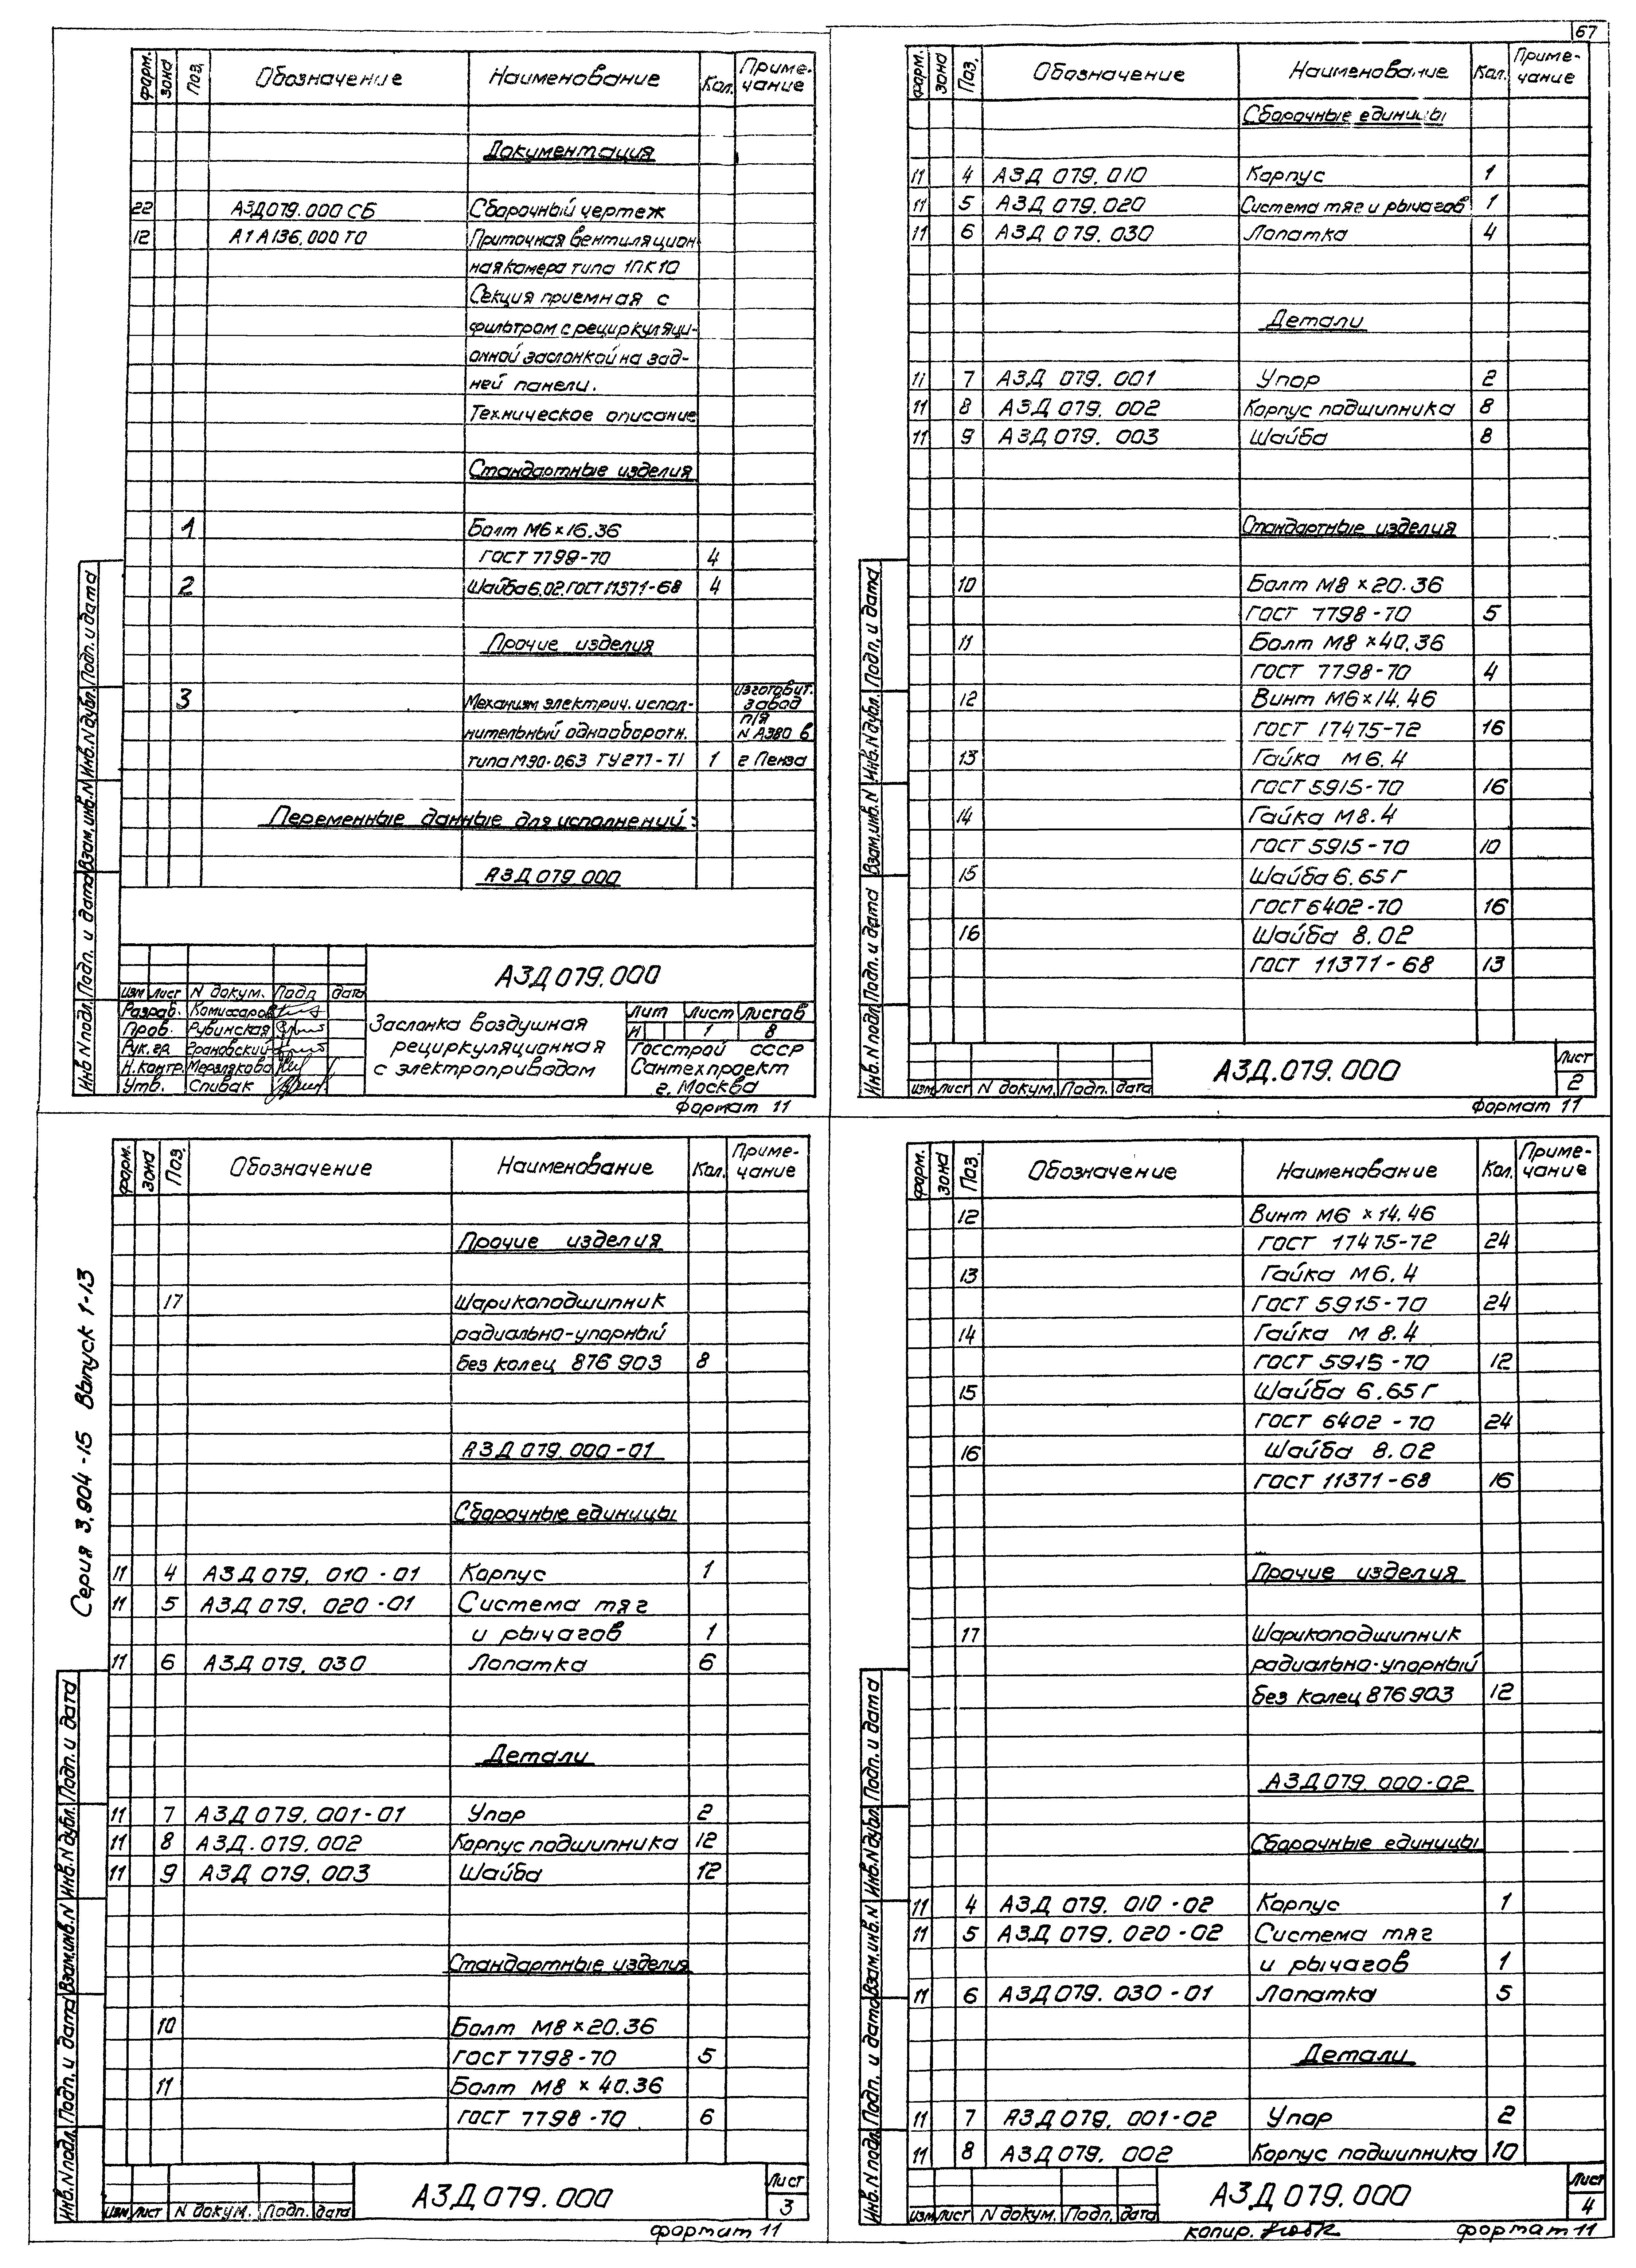 67
форм. зона Поз. Обозначение Наименование Кол. Приме-
чание
Документация
22 А3Д079.000 СБ Сборочный чертеж
12 А1А136.000 ТО Приточная вентиляцион-
ная камера типа 1ПК10
Секция приемная с
фильтром с рециркуляци-
онной заслонкой на зад-
ней панели.
Техническое описание
Стандартные изделия
1 Болт М6×16.36
ГОСТ 7798-70 4
2 Шайба 6.02.ГОСТ 11371-68 4
Прочие изделия
3 Механизм электрич. испол- изготовит.
завод
нительный однооборотн. п/я
N А380 в
типа МЭО-0,63 ТУ277-71 1 г Пенза
Переменные данные для исполнений:
А3Д079.000
А3Д079.000
изм лист N докум. Подп дата
Разраб. Комиссаров
Пров. Рубинская
Рук.гр. Грановский
Н.контр. Мерзлякова
Утв. Спивак
Заслонка воздушная
рециркуляционная
с электроприводом
Лит Лист Листов
И 1 8
Госстрой СССР
Сантехпроект
г. Москва
Формат 11
Инв.N подл. Подп. и дата Взам.инв.N Инв.N дубл. Подп. и дата
форм. зона Поз. Обозначение Наименование Кол. Приме-
чание
Сборочные единицы
11 4 А3Д 079.010 Корпус 1
11 5 А3Д 079.020 Система тяг и рычагов 1
11 6 А3Д 079.030 Лопатка 4
Детали
11 7 А3Д 079.001 Упор 2
11 8 А3Д 079.002 Корпус подшипника 8
11 9 А3Д 079.003 Шайба 8
Стандартные изделия
10 Болт М8×20.36
ГОСТ 7798-70 5
11 Болт М8×40.36
ГОСТ 7798-70 4
12 Винт М6×14.46
ГОСТ 17475-72 16
13 Гайка М6.4
ГОСТ 5915-70 16
14 Гайка М8.4
ГОСТ 5915-70 10
15 Шайба 6.65Г
ГОСТ 6402-70 16
16 Шайба 8.02
ГОСТ 11371-68 13
изм лист N докум. Подп. дата
А3Д.079.000
Лист
2
Формат 11
Инв.N подл. Подп. и дата Взам.инв.N Инв.N дубл. Подп. и дата
Серия 3.904-15 Выпуск 1-13
форм. зона Поз. Обозначение Наименование Кол. Приме-
чание
Прочие изделия
17 Шарикоподшипник
радиально-упорный
без колец 876903 8
А3Д079.000-01
Сборочные единицы
11 4 А3Д079.010-01 Корпус 1
11 5 А3Д079.020-01 Система тяг
и рычагов 1
11 6 А3Д079.030 Лопатка 6
Детали
11 7 А3Д079.001-01 Упор 2
11 8 А3Д.079.002 Корпус подшипника 12
11 9 А3Д079.003 Шайба 12
Стандартные изделия
10 Болт М8×20.36
ГОСТ 7798-70 5
11 Болт М8×40.36
ГОСТ 7798-70 6
изм. лист N докум. Подп. дата
А3Д079.000
Лист
3
формат 11
Инв.N подл. Подп. и дата Взам.инв.N Инв.N дубл. Подп. и дата
форм. зона Поз. Обозначение Наименование Кол. Приме-
чание
12 Винт М6×14.46
ГОСТ 17475-72 24
13 Гайка М6.4
ГОСТ 5915-70 24
14 Гайка М8.4
ГОСТ 5915-70 12
15 Шайба 6.65Г
ГОСТ 6402-70 24
16 Шайба 8.02
ГОСТ 11371-68 16
Прочие изделия
17 Шарикоподшипник
радиально-упорный
без колец 876903 12
А3Д079.000-02
Сборочные единицы
11 4 А3Д079.010-02 Корпус 1
11 5 А3Д079.020-02 Система тяг
и рычагов 1
11 6 А3Д079.030-01 Лопатка 5
Детали
11 7 А3Д079.001-02 Упор 2
11 8 А3Д079.002 Корпус подшипника 10
изм лист N докум. Подп. дата
А3Д079.000
Лист
4
копир.
формат 11
Инв.N подл. Подп. и дата Взам.инв.N Инв.N дубл. Подп. и дата